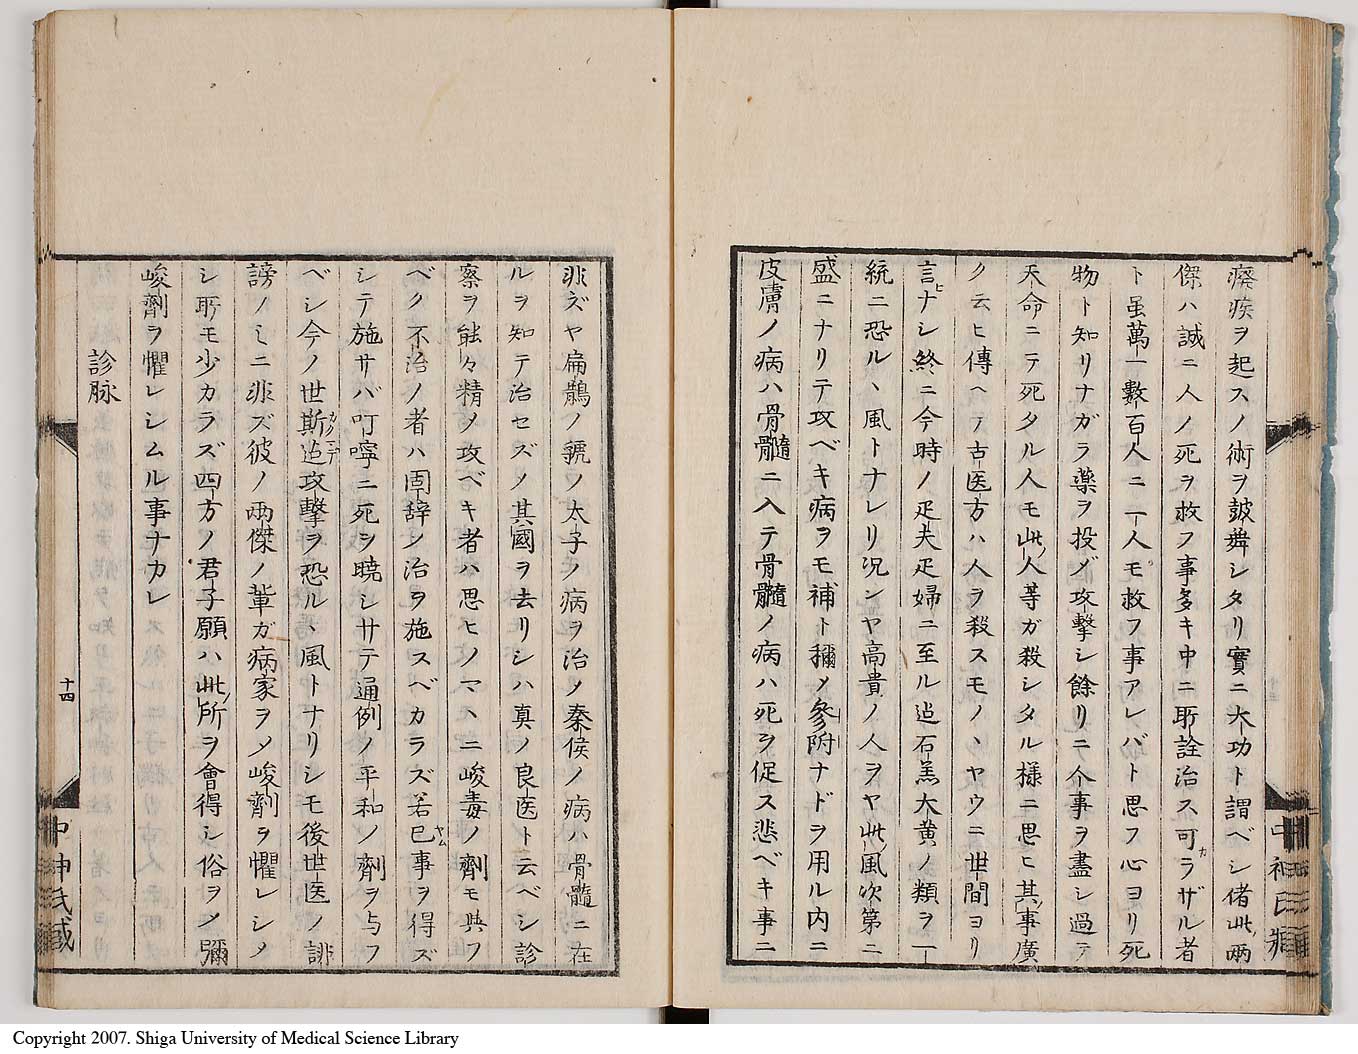 癈疾ヲ起スノ術ヲ皷舞シタリ實ニ大功ト謂ベシ偖此両
傑ハ誠ニ人ノ死ヲ救フ事多キ中ニ所詮治ス可ラザル者
ト虽萬一數百人ニ一人モ救フ事アレバト思フ心ヨリ死
物ト知リナガラ薬ヲ投メ攻擊シ餘リニ介事ヲ盡シ過テ
天命ニテ死タル人モ此人等ガ殺シタル様ニ思ヒ其事廣
ク云ヒ傳ヘテ古医方ハ人ヲ殺スモノヽヤウニ世間ヨリ
言ナシ終ニ今時ノ疋夫疋婦ニ至ル迠石羔大黄ノ類ヲ一
統ニ恐ルヽ風トナレリ况ンヤ高貴ノ人ヲヤ此風次第ニ
盛ニナリテ攻ベキ病ヲモ補ト稱メ參附ナドヲ用ル内ニ
皮膚ノ病ハ骨髓ニ入テ骨髓ノ病ハ死ヲ促ス悲ベキ事ニ
非ズヤ扁鵲ノ虢ノ太子ノ病ヲ治メ秦侯ノ病ハ骨髓ニ在
ルヲ知テ治セズメ其國ヲ去リシハ真ノ良医ト云ベシ診
察ヲ能々精メ攻ベキ者ハ思ヒノマヽニ峻毒ノ劑モ與フ
ベク不治ノ者ハ固辞シ治ヲ施スベカラズ若已事ヲ得ズ
シテ施サバ叮嚀ニ死ヲ曉シサテ通例ノ平和ノ劑ヲ与フ
ベシ今ノ世斯迠攻擊ヲ恐ルヽ風トナリシモ後世医ノ誹
謗ノミニ非ズ彼ノ両傑ノ輩ガ病家ヲメ峻劑ヲ懼レシメ
シ所モ少カラズ四方ノ君子願ハ此所ヲ會得シ俗ヲメ彌
峻劑ヲ懼レシムル事ナカレ
診脉
十四
中神氏蔵
Copyright 2007. Shiga University of Medical Science Library